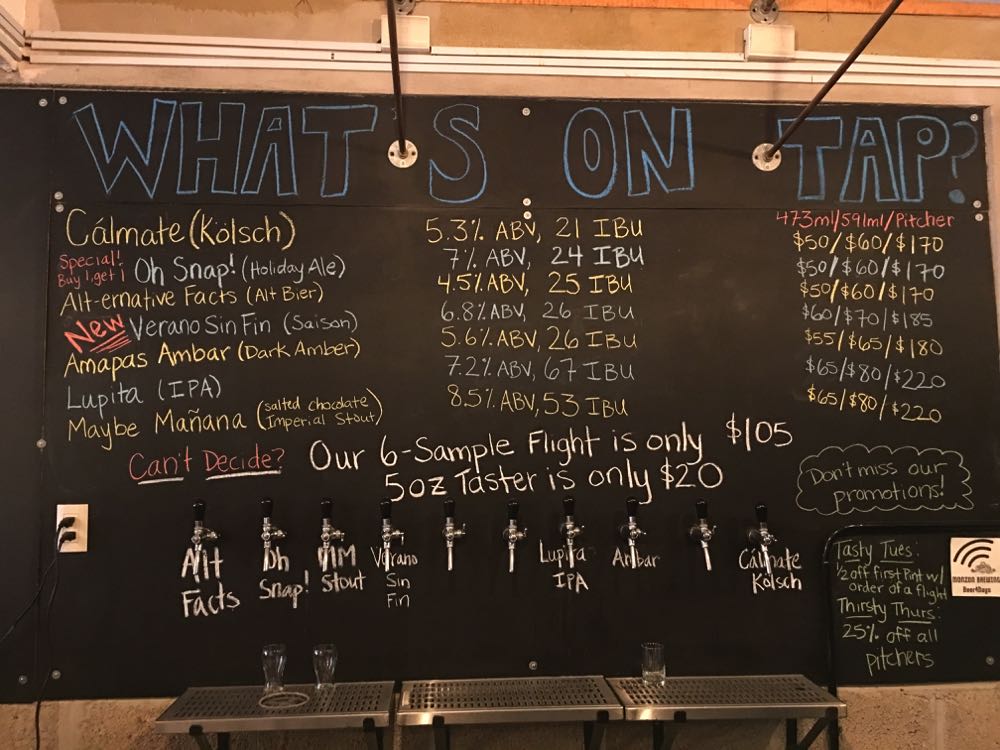 WHAT'S ON TAP?
473ml/591ml/Pitcher
Cálmate (Kölsch) 5.3% ABV, 21 IBU $50/$60/$170
Special! Buy 1, get 1 Oh Snap! (Holiday Ale) 7% ABV, 24 IBU $50/$60/$170
Alt-ernative Facts (Alt Bier) 4.5% ABV, 25 IBU $50/$60/$170
New Verano Sin Fin (Saison) 6.8% ABV, 26 IBU $60/$70/$185
Amapas Ambar (Dark Amber) 5.6% ABV, 26 IBU $55/$65/$180
Lupita (IPA) 7.2% ABV, 67 IBU $65/$80/$220
Maybe Mañana (salted chocolate Imperial Stout) 8.5% ABV, 53 IBU $65/$80/$220
Can't Decide? Our 6-Sample Flight is only $105
5oz Taster is only $20
Don't miss our
promotions!
Alt
Facts
Oh
Snap!
MM
Stout
Verano
Sin
Fin
Lupita
IPA
Ambar
Cálmate
Kölsch
Tasty Tues:
1/2 off first Pint w/
order of a flight
Thirsty Thurs:
25% off all
pitchers
MONZON BREWING
Beer4Days